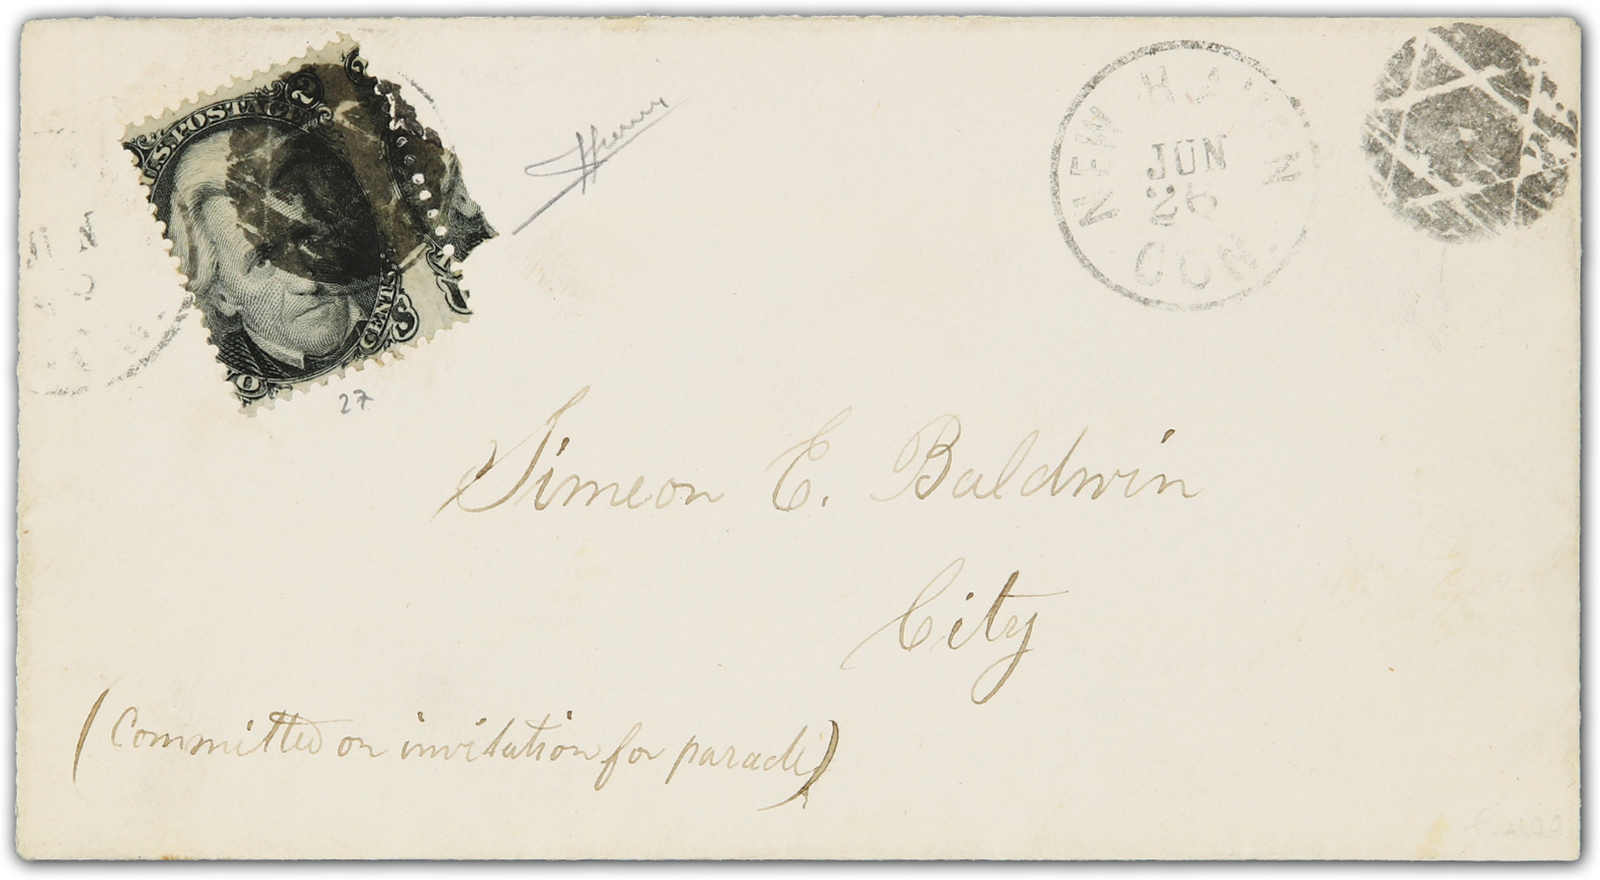 U.S. POSTAGE
2
CENTS
NEW HAVEN
JUN
26
CON.
27
Simeon E. Baldwin
City
(Committee on invitation for parade)